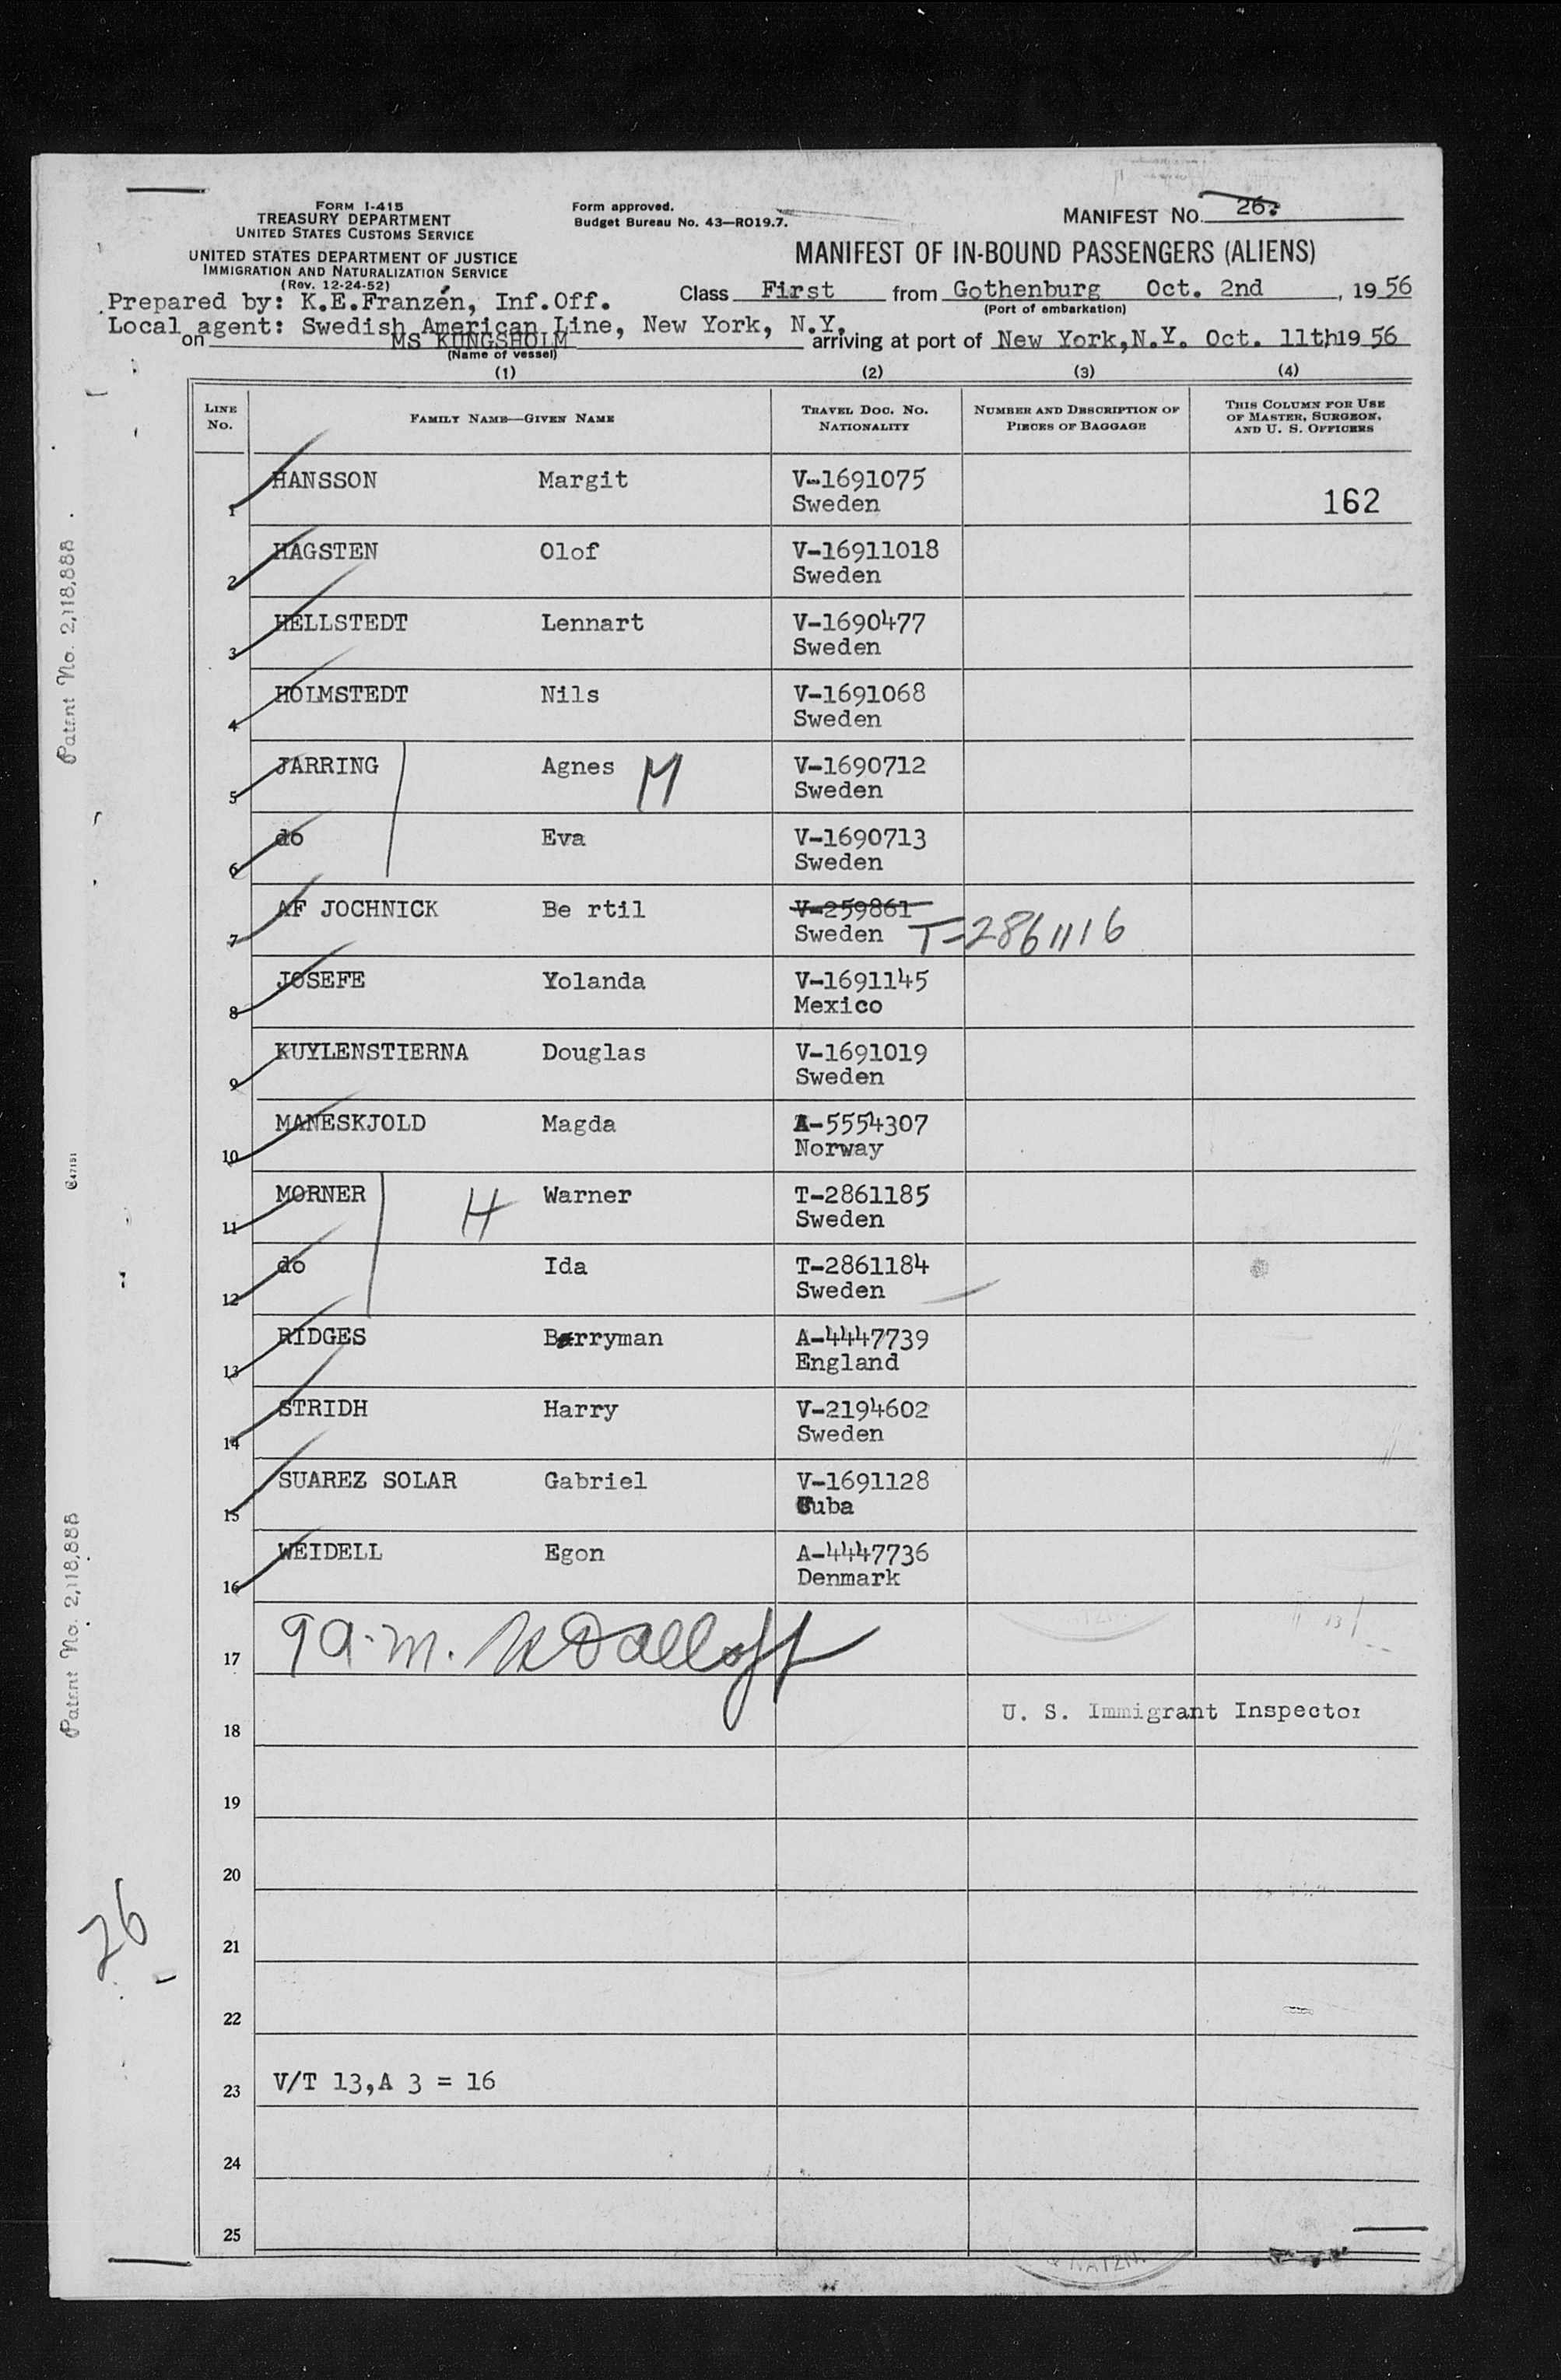 FORM I-415
TREASURY DEPARTMENT
UNITED STATES CUSTOMS SERVICE
UNITED STATES DEPARTMENT OF JUSTICE
IMMIGRATION AND NATURALIZATION SERVICE
(Rev. 12-24-52)
Form approved.
Budget Bureau No. 43—RO19.7.
MANIFEST No. 26.
MANIFEST OF IN-BOUND PASSENGERS (ALIENS)
Prepared by: K.E.Franzén, Inf.Off.
Class First from Gothenburg Oct. 2nd, 1956
(Port of embarkation)
Local agent: Swedish American Line, New York, N.Y.
on MS KUNGSHOLM arriving at port of New York,N.Y. Oct. 11th1956
(Name of vessel)
(1) (2) (3) (4)
LINE No. FAMILY NAME—GIVEN NAME TRAVEL DOC. NO. NATIONALITY NUMBER AND DESCRIPTION OF PIECES OF BAGGAGE THIS COLUMN FOR USE OF MASTER, SURGEON, AND U. S. OFFICERS
1 HANSSON Margit V-1691075
Sweden 162
2 HAGSTEN Olof V-16911018
Sweden
3 HELLSTEDT Lennart V-1690477
Sweden
4 HOLMSTEDT Nils V-1691068
Sweden
5 JARRING Agnes M V-1690712
Sweden
6 do Eva V-1690713
Sweden
7 AF JOCHNICK Be rtil V-259861
Sweden T-2861116
8 JOSEFE Yolanda V-1691145
Mexico
9 KUYLENSTIERNA Douglas V-1691019
Sweden
10 MANESKJOLD Magda A-5554307
Norway
11 MORNER H Warner T-2861185
Sweden
12 do Ida T-2861184
Sweden
13 RIDGES Berryman A-4447739
England
14 STRIDH Harry V-2194602
Sweden
15 SUAREZ SOLAR Gabriel V-1691128
Cuba
16 WEIDELL Egon A-4447736
Denmark
17 9 a.m.
18 U. S. Immigrant Inspector
19
20
21
22
23 V/T 13,A 3 = 16
24
25
Patent No. 2,118,888
Patent No. 2,118,888
26